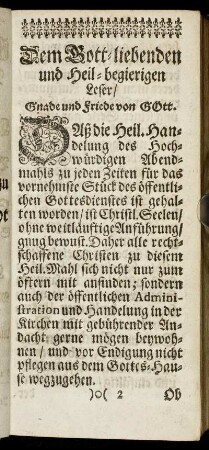 Dem Gott-liebenden
und Heil-begierigen
Leser/
Gnade und Friede von GOtt.
DAß die Heil. Han-
delung des Hoch-
würdigen Abend-
mahls zu jeden Zeiten für das
vornehmste Stück des öffentli-
chen Gottesdienstes ist gehal-
ten worden/ ist Christl. Seelen/
ohne weitläuftige Anführung/
gnug bewust. Daher alle recht-
schaffene Christen zu diesem
Heil. Mahl sich nicht nur zum
öftern mit anfinden; sondern
auch der öffentlichen Admini-
stration und Handelung in der
Kirchen mit gebührender An-
dacht gerne mögen beywoh-
nen/ und vor Endigung nicht
pflegen aus dem Gottes-Hau-
se wegzugehen.
)o( 2 Ob